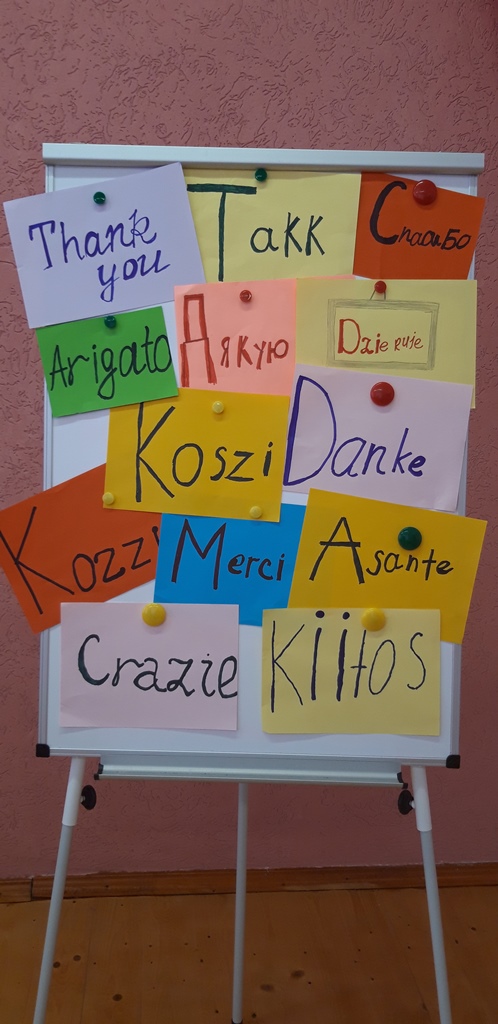 Thank
you
Takk
Спасибо
Arigato
Дякую
Dzie ruje
Koszi
Danke
Kozzi
Merci
Asante
Crazie
Kiitos